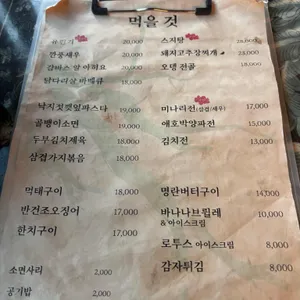 먹을 것
20,000
깐풍새우 20,000
감바스 알 아히요 20,000
닭다리살 바베큐 18,000
낙지젓깻잎파스타 19,000
골뱅이소면 19,000
두부김치제육 18,000
삼겹가지볶음 18,000
먹태구이 18,000
반건조오징어 17,000
한치구이 17,000
소면사리 2,000
공기밥 2,000
스지탕 28,000
돼지고추장찌개 23,000
오뎅 전골 18,000
미나리전(삼겹/새우) 17,000
애호박양파전 15,000
김치전 13,000
명란버터구이 14,000
바나나브륄레 10,000
&아이스크림
로투스 아이스크림 8,000
감자튀김 8,000